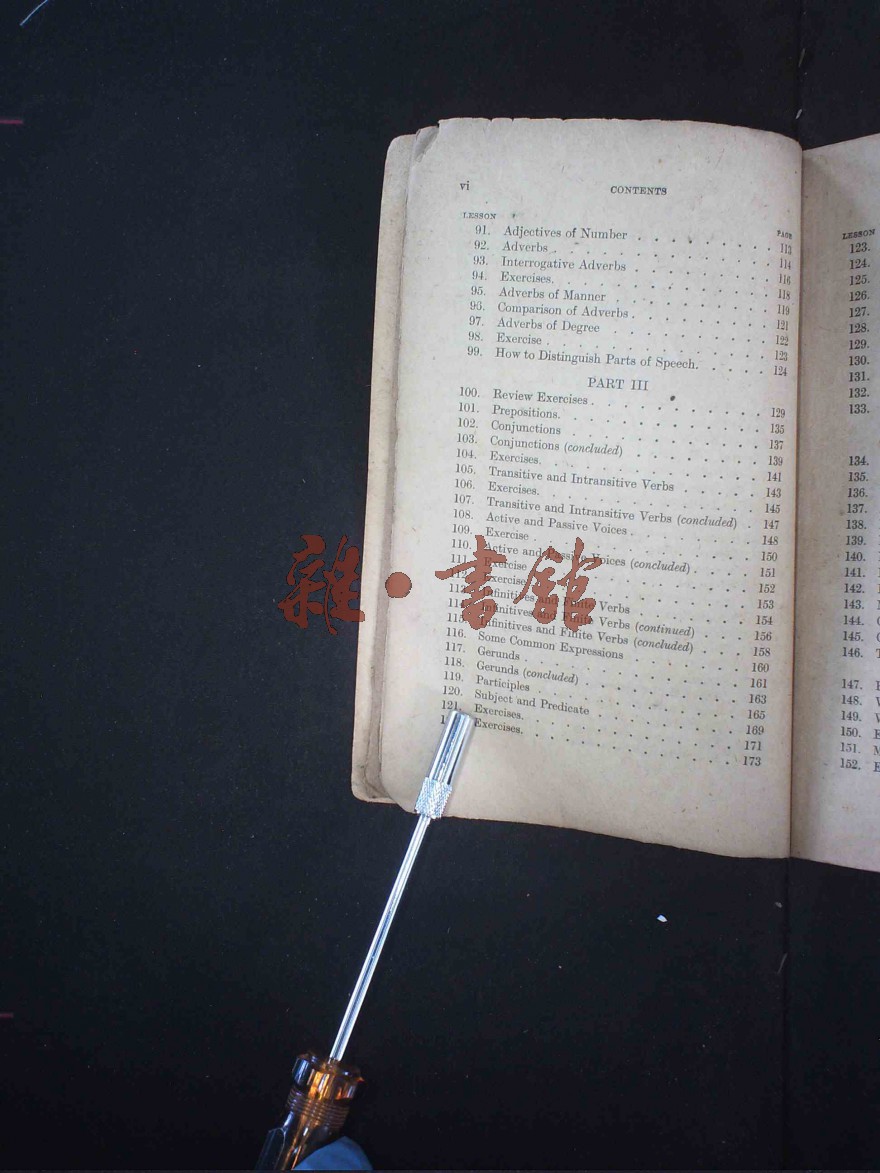 vi CONTENTS
LESSON PAGE
91. Adjectives of Number 113
92. Adverbs 114
93. Interrogative Adverbs 116
94. Exercises. 118
95. Adverbs of Manner 119
96. Comparison of Adverbs. 121
97. Adverbs of Degree 122
98. Exercise 123
99. How to Distinguish Parts of Speech. 124
PART III
100. Review Exercises 129
101. Prepositions. 135
102. Conjunctions 137
103. Conjunctions (concluded) 139
104. Exercises. 141
105. Transitive and Intransitive Verbs 143
106. Exercises. 145
107. Transitive and Intransitive Verbs (concluded) 147
108. Active and Passive Voices 148
109. Exercise 150
110. Active and Passive Voices (concluded) 151
111. Exercise 152
112. Exercise 153
113. Infinitives and Finite Verbs 154
114. Infinitives and Finite Verbs (continued) 156
115. Infinitives and Finite Verbs (concluded) 158
116. Some Common Expressions 160
117. Gerunds 161
118. Gerunds (concluded) 163
119. Participles 165
120. Subject and Predicate 169
121. Exercises. 171
Exercises. 173
雜·書館
LESSON
123.
124.
125.
126.
127.
128.
129.
130.
131.
132.
133.
134.
135.
136.
137.
138.
139.
140.
141.
142.
143.
144.
145.
146.
147.
148.
149.
150.
151.
152.